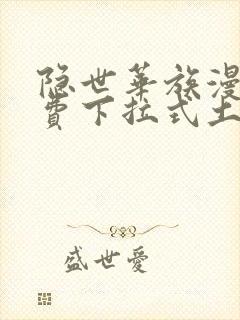 隐世华族漫
费下拉式土
盛世爱